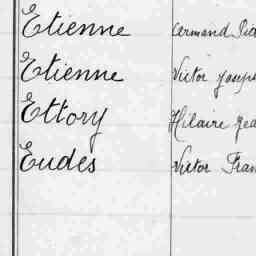 Etienne Armand
Etienne Victor Joseph
Ettory Hilaire
Eudes Victor